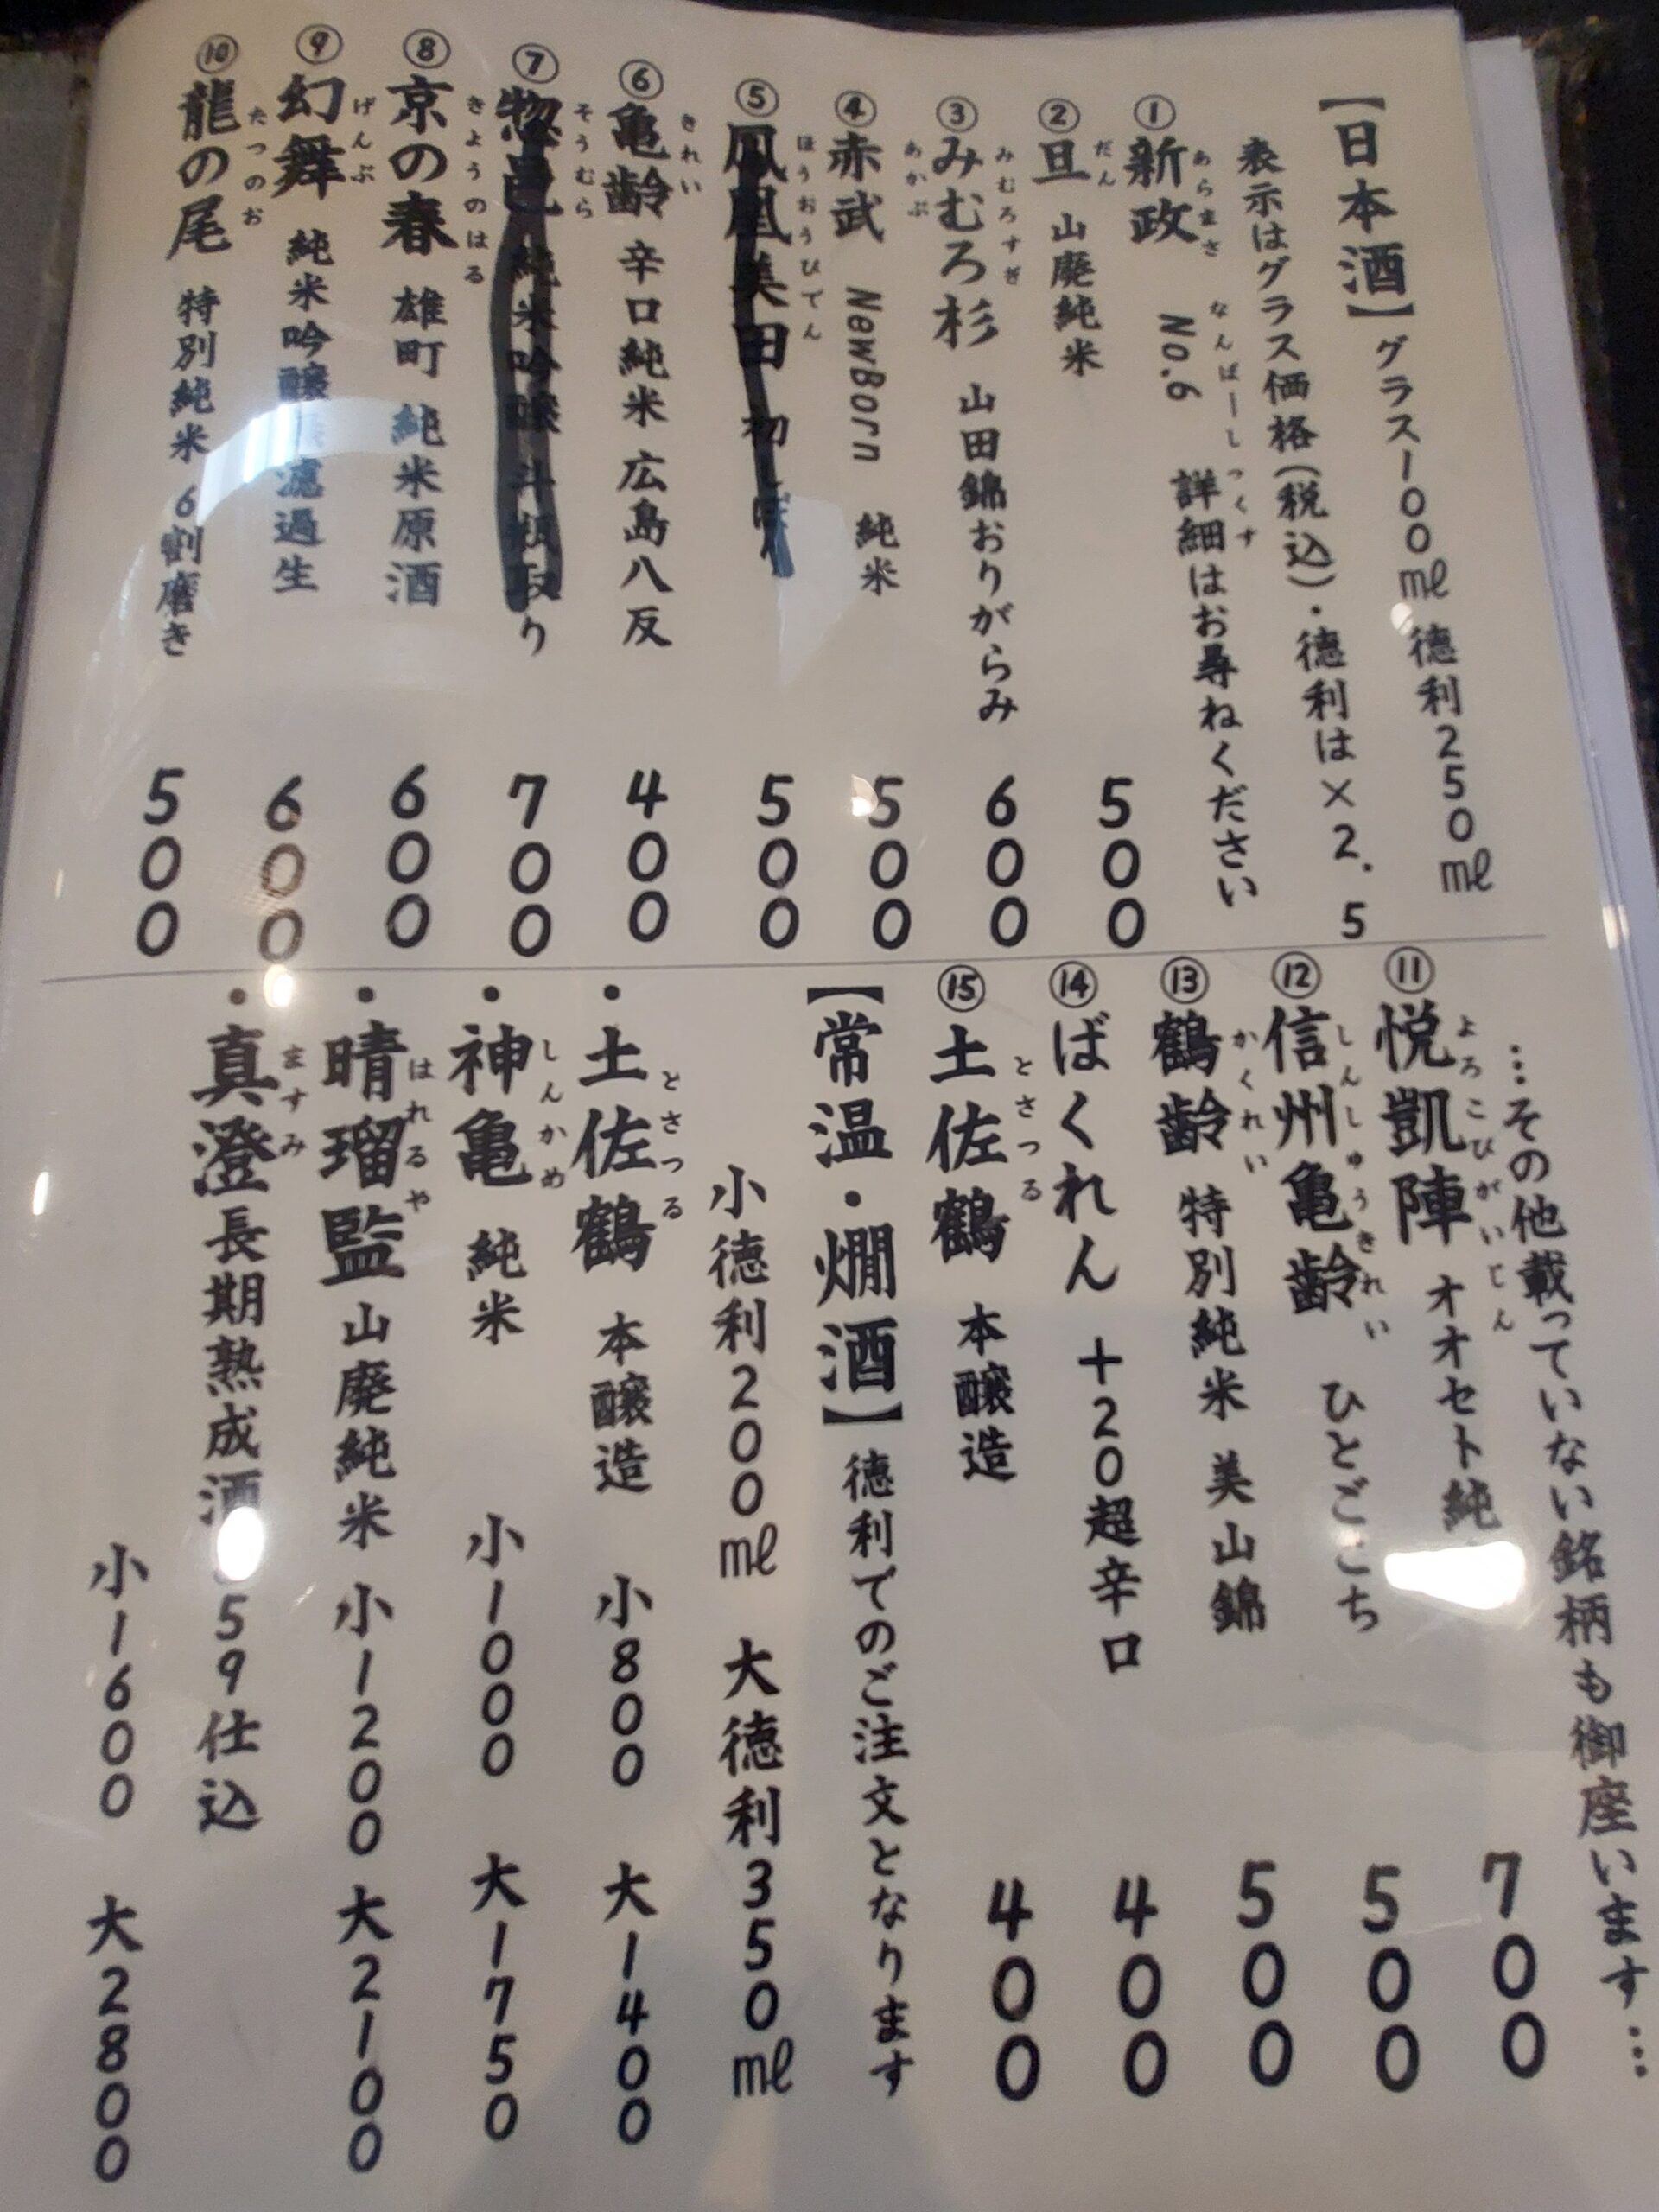 【日本酒】グラス100㎖ 徳利250㎖
表示はグラス価格(税込)・徳利は×2.5
①新政 No.6 詳細はお尋ねください
あらまさ なんばーしっくす
②旦 山廃純米 500
だん
③みむろ杉 山田錦おりがらみ 600
みむろすぎ
④赤武 NewBorn 純米 500
あかぶ
⑤鳳凰美田 初 500
ほうおうびでん
⑥亀齢 辛口純米 広島八反 400
きれい
⑦惣邑 純米吟醸 斗瓶取り 700
そうむら
⑧京の春 雄町 純米原酒 600
きょうのはる
⑨幻舞 純米吟醸無濾過生 600
げんぶ
⑩龍の尾 特別純米 6割磨き 500
たつのお
…その他載っていない銘柄も御座います…
⑪悦凱陣 オオセト純 700
よろこびがいじん
⑫信州亀齢 ひとごこち 500
しんしゅうきれい
⑬鶴齢 特別純米 美山錦 500
かくれい
⑭ばくれん +20超辛口 400
⑮土佐鶴 本醸造 400
とさつる
【常温・燗酒】徳利でのご注文となります
小徳利200㎖ 大徳利350㎖
・土佐鶴 本醸造 小800 大1400
とさつる
・神亀 純米 小1000 大1750
しんかめ
・晴瑠監 山廃純米 小1200 大2100
はれるや
・真澄 長期熟成酒 59仕込
ますみ
小1600 大2800